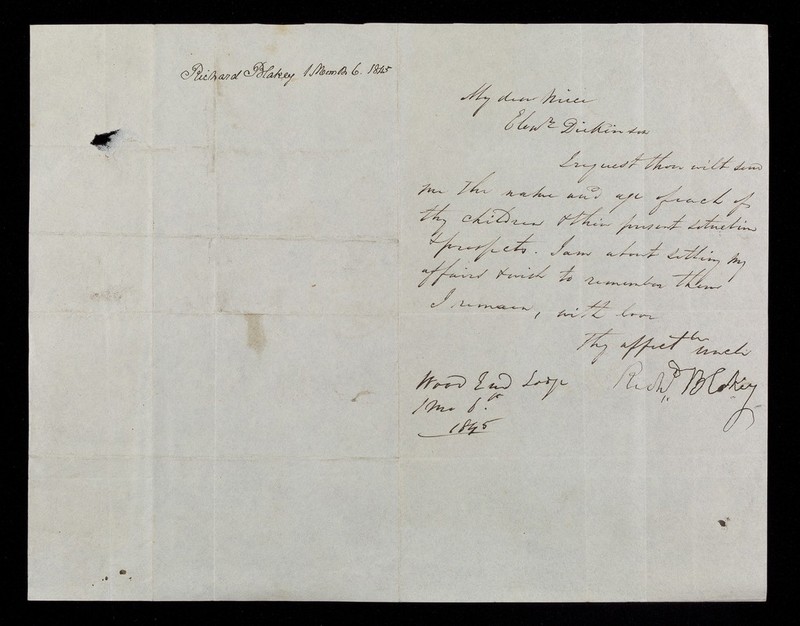 Richard Blakey 1 Month 6. 1845
My dear Niece
Elenr. Dickinson
I request thou wilt send
me the name and age of each of
thy children & their present situation
& prospects. I am about settling my
affairs & wish to remember them
I remain, with love
Thy affectte uncle
Richd Blakey
Wood End Lodge
1 Mo 6th
1845